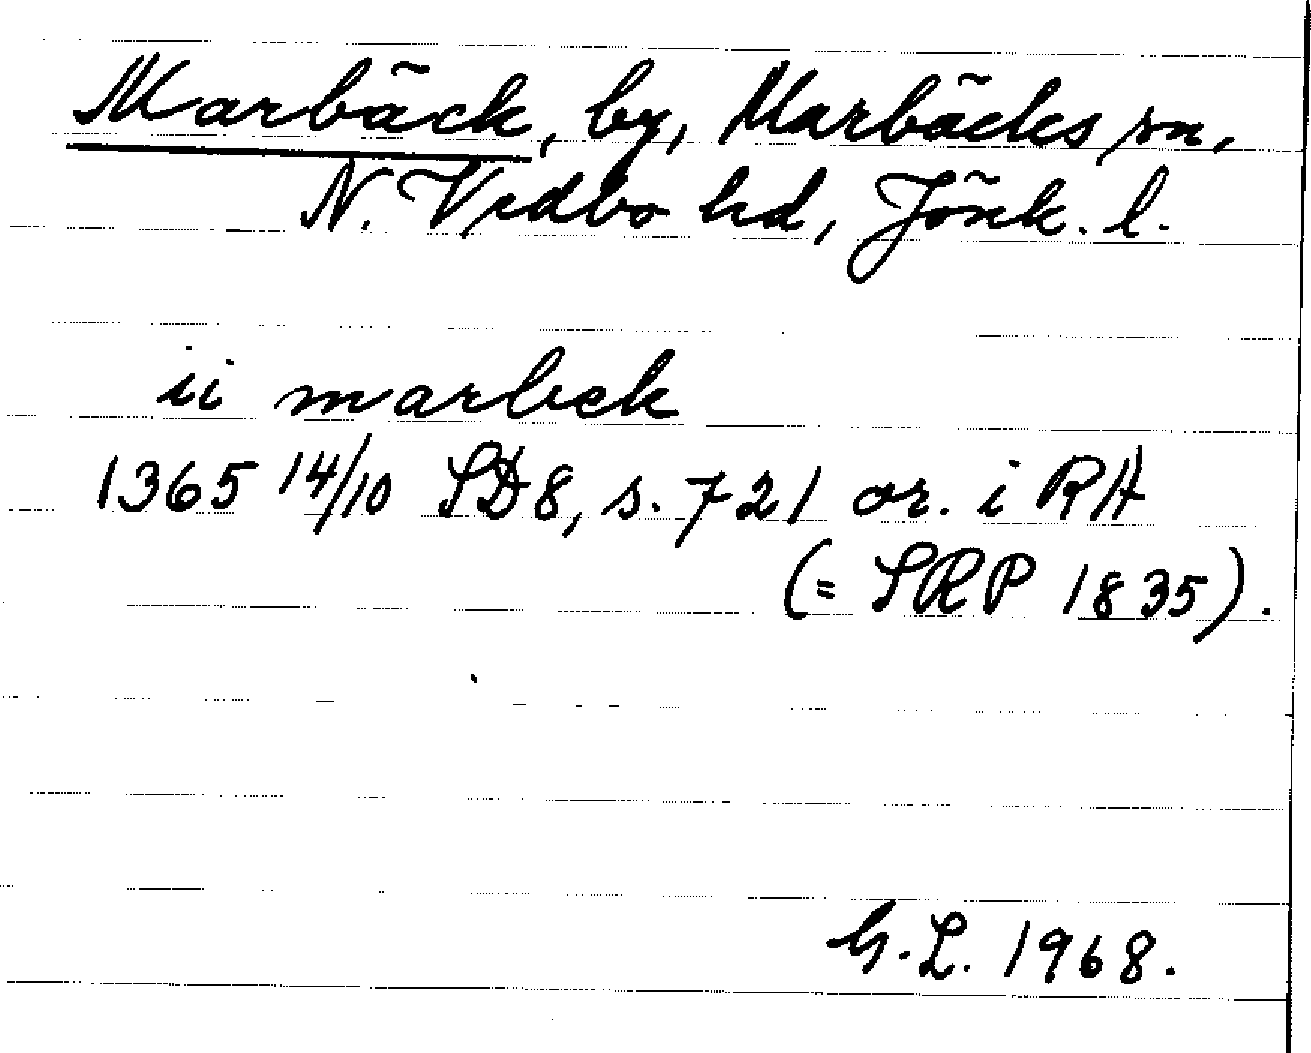 Marbäck, by, Marbäcks sn,
N. Vedbo hd, Jönk. l.
ii marbek
1365 14/10 SD8, s. 721 or. i RA
(= SRP 1835).
G.L. 1968.